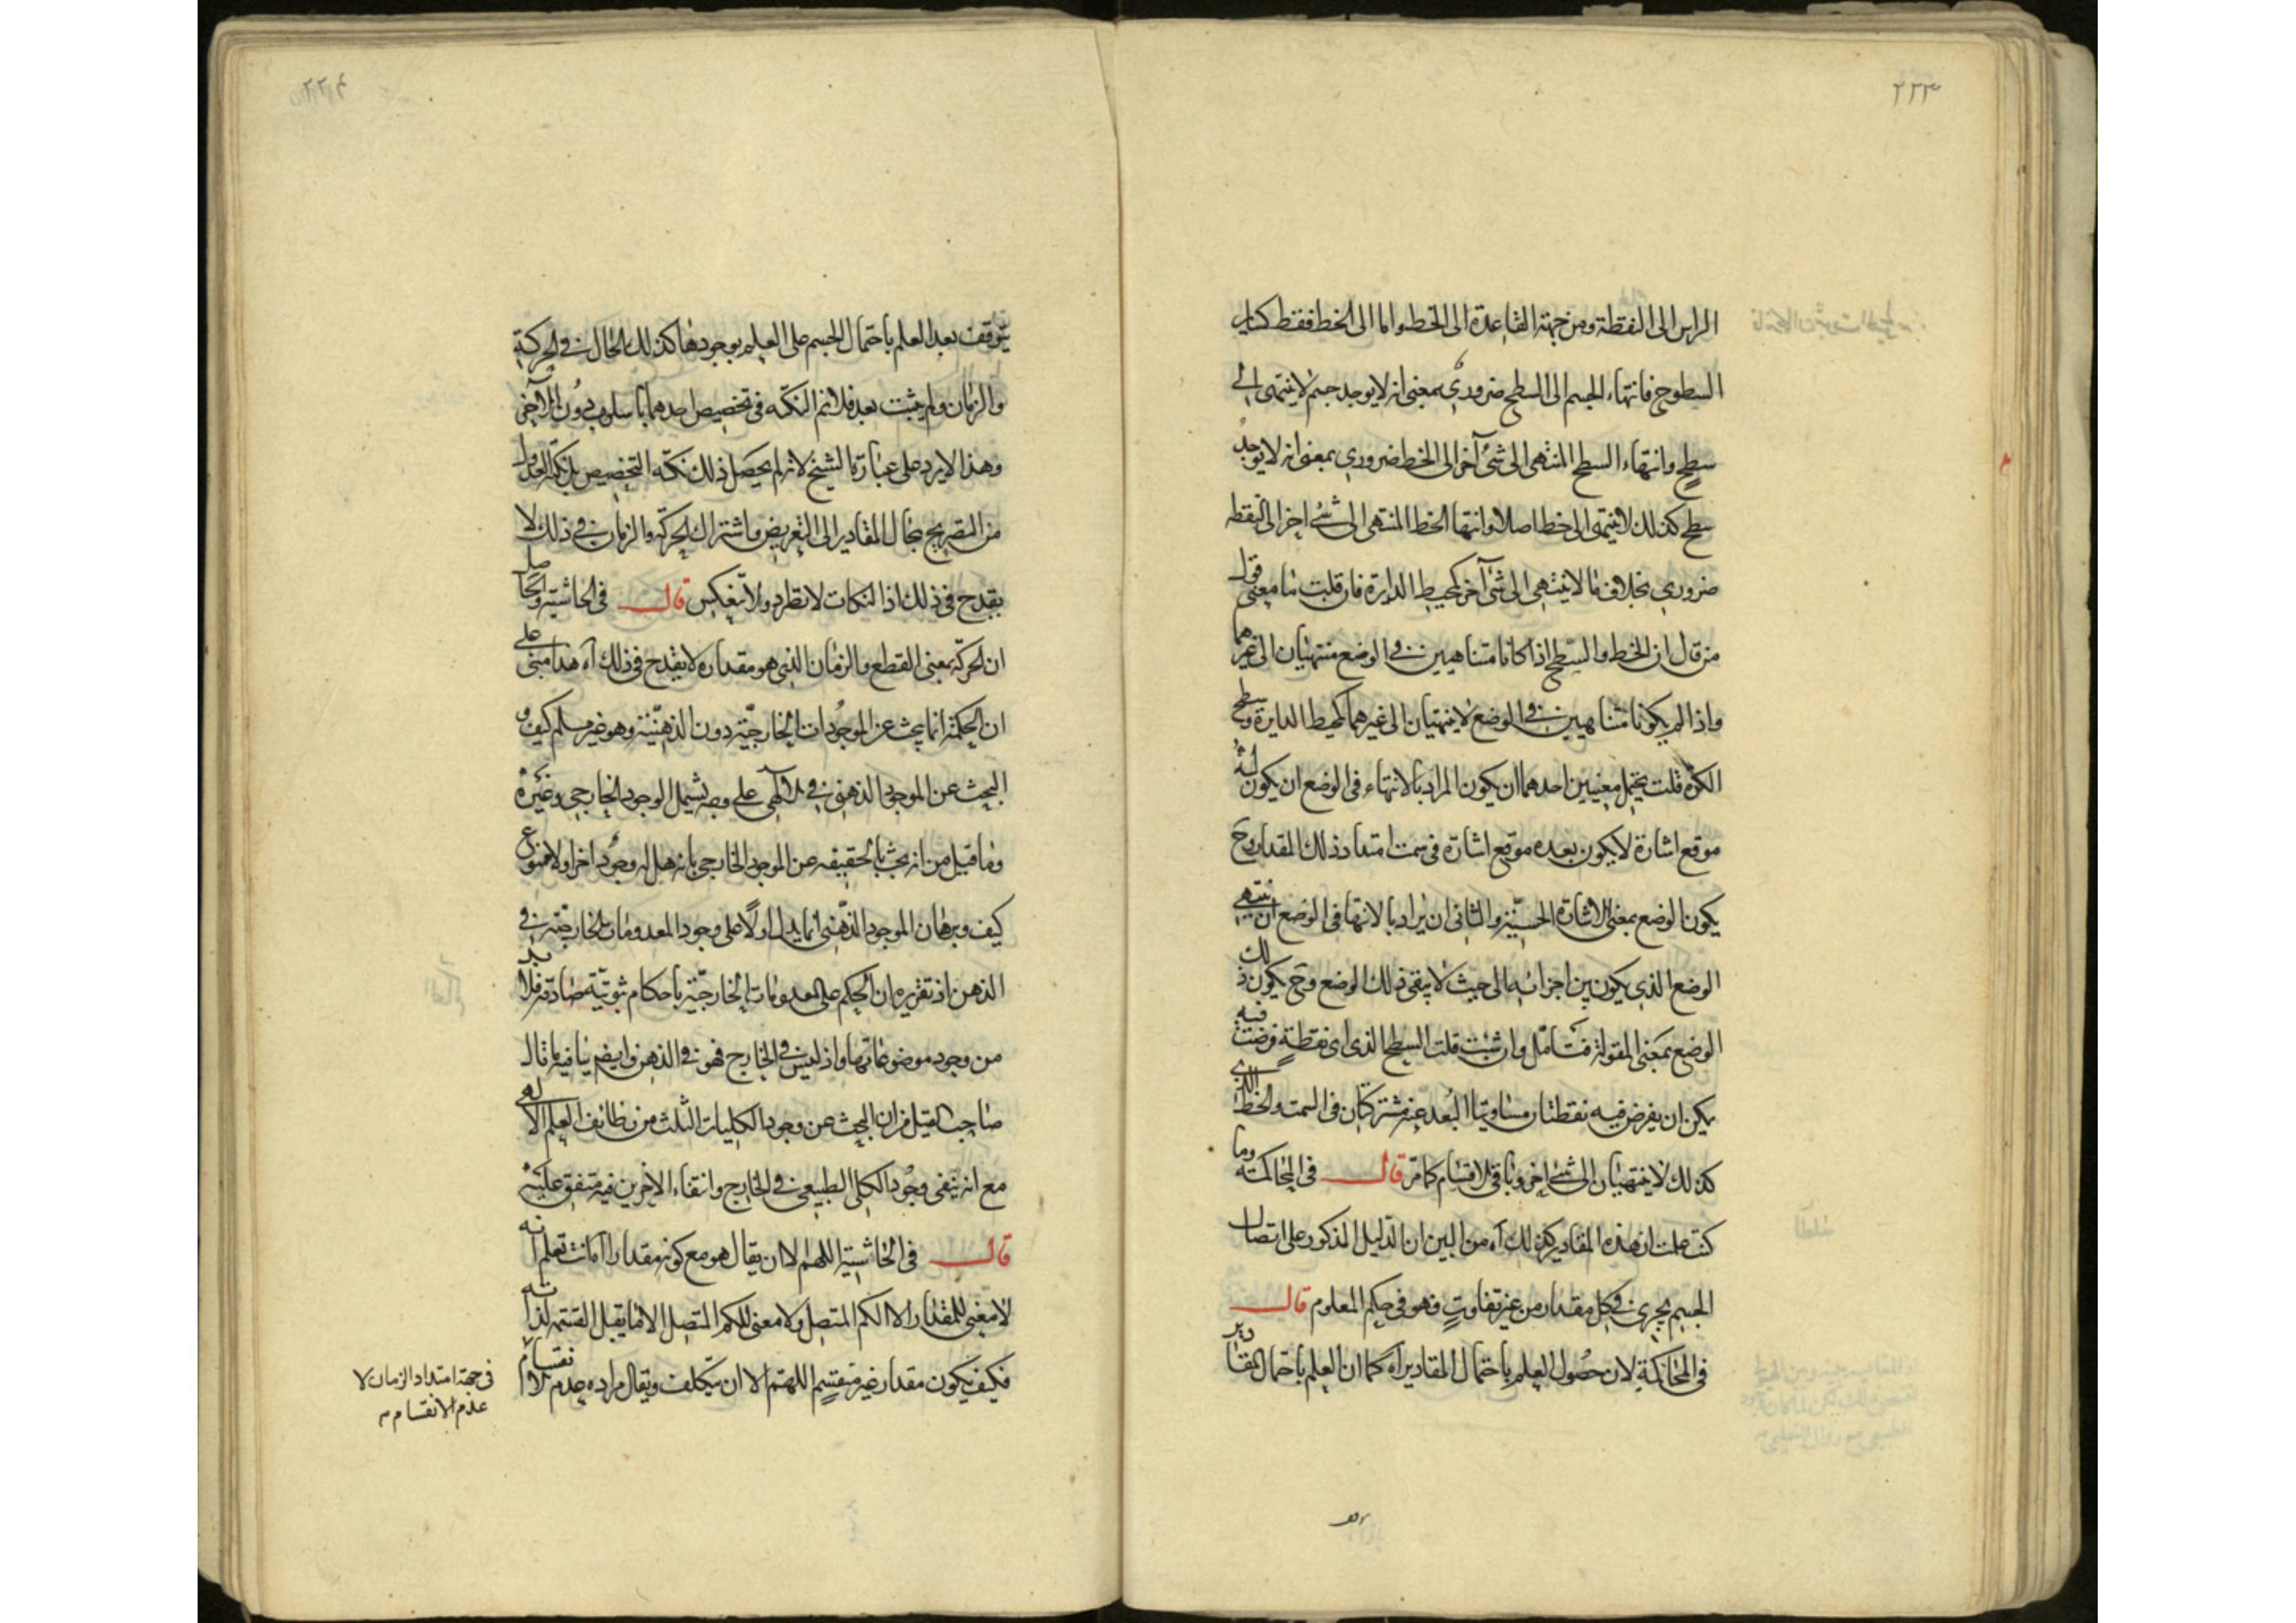 ٢٢٣
الراس الى النقطة ومن جهة القاعدة الى الخط واما الى الخط فقط كساير
السطوح فانتهاء الجسم الى السطح ضروري بمعنى انه لا يوجد جسم لا ينتهى الى
سطح وانتهاء السطح المنتهى الى شئ آخر الى الخط ضروري بمعنى انه لا يوجد
سطح كذلك لا ينتهى الى خط اصلا وانتها الخط المنتهى الى شئ اخر الى النقطه
ضروري بخلاف ما لا ينتهى الى شئ آخر كمحيط الدايرة فان قلت ما معنى قول
من قال ان الخط والسطح اذا كانا متناهيين في الوضع منتهيان الى غيرهما
واذا لم يكونا متناهيين في الوضع لا ينتهيان الى غيرهما كمحيط الدايرة وسطح
الكرة قلت يحتمل معنيين احدهما ان يكون المراد بالانتهاء فى الوضع ان يكون له
موقع اشارة لا يكون بعده موقع اشارة فى سمت امتداد ذلك المقدار وح
يكون الوضع بمعنى الاشارة الحسيّة والثانى ان يراد بالانتها فى الوضع ان ينتهى
الوضع الذي يكون بين اجزائه الى حيث لا يبقى ذلك الوضع وح يكون ذلك
الوضع بمعنى المقولة فتامّل وان شئت قلت السطح الذى اى نقطةٍ فرضت فيه
يمكن ان يفرض فيه نقطتان متساويتا البُعد عنه مشتركتان فى السمت والخط الذي
كذلك لا ينتهيان الى شئ اخر وباقى الاقسام كما مرّ قال فى المحاكمة وما
كنت علمت ان هذه المقادير كذلك آه من البين ان الدليل المذكور على اتصال
الجسم يجرى في كل مقدار من غير تفاوتٍ فهو فى حكم المعلوم قال
فى المحاكمة لان حصُول العلم باحتمال المقادير اه كما ان العلم باحتمال المقادير
٢٢٤
يتوقف بعد العلم باحتمال الجسم على العلم بوجودها كذلك الحال في الحركة
والزمان ولم يثبت بعد فلا تتم النكتة فى تخصيص احدهما باسلوب دُون الآخر
وهذا لا يرد على عبارة الشيخ لانه لم يجعل ذلك نكتة التخصيص بل نكتة العدول
من التصريح بحال المقادير الى التعريض واشتراك الحركة والزمان في ذلك لا
يقدح فى ذلك اذ النكات لا تطرد ولا تنعكس قال فى الحاشية والحاصل
ان الحركة بمعنى القطع والزمان الذي هو مقداره لا يقدح فى ذلك آه هذا مبنى على
ان الحكمة انما يبحث عن الموجُودات الخارجيّة دون الذهنيّة وهو غير مسلم كيف و
البحث عن الموجود الذهنى في الآلهى على وجه يشمل الوجود الخارجى وغيره
وما قيل من انه بحث بالحقيقه عن الموجود الخارجى بانه هل له وجُود اخر اولا ممنوع
كيف وبرهان الموجود الذّهنى انما يدل اولاً على وجود المعدومات الخارجيّة في
الذهن اذ تقريره ان الحكم على المعدومات الخارجيّة باحكام ثبوتيّة صادقة فلا بد
من وجود موضوعاتها واذ ليس في الخارج فهو في الذهن وايضم ينافيه ما قال
صاحب القيل من ان البحث عن وجود الكليات الثلث من وظائف العلم الالهى
مع انه ينفى وجُود الكلى الطبيعى في الخارج وانتفاء الاخرين فيه متفق عليه
قال فى الحاشية اللهم الا ان يقال هو مع كونه مقدارا آه انت تعلم انه
لا معنى للمقدار الا الكم المتصل ولا معنى للكم المتصل الا ما يقبل القسمة لذاته
فكيف يكون مقدار غير منقسم اللهم الا ان يتكلف ويقال مراده عدم الانقسام
فى جهة امتداد الزمان لا
عدم الانقسام